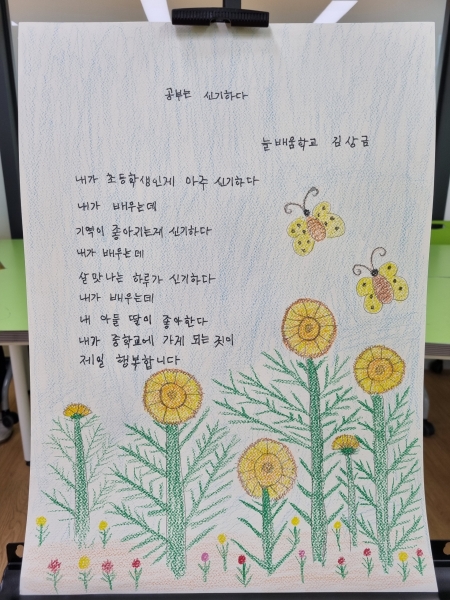 공부는 신기하다
늘배움학교 김상금
내가 초등학생인게 아주 신기하다
내가 배우는데
기억이 좋아지는게 신기하다
내가 배우는데
살맛나는 하루가 신기하다
내가 배우는데
내 아들 딸이 좋아한다
내가 중학교에 가게 되는 것이
제일 행복합니다